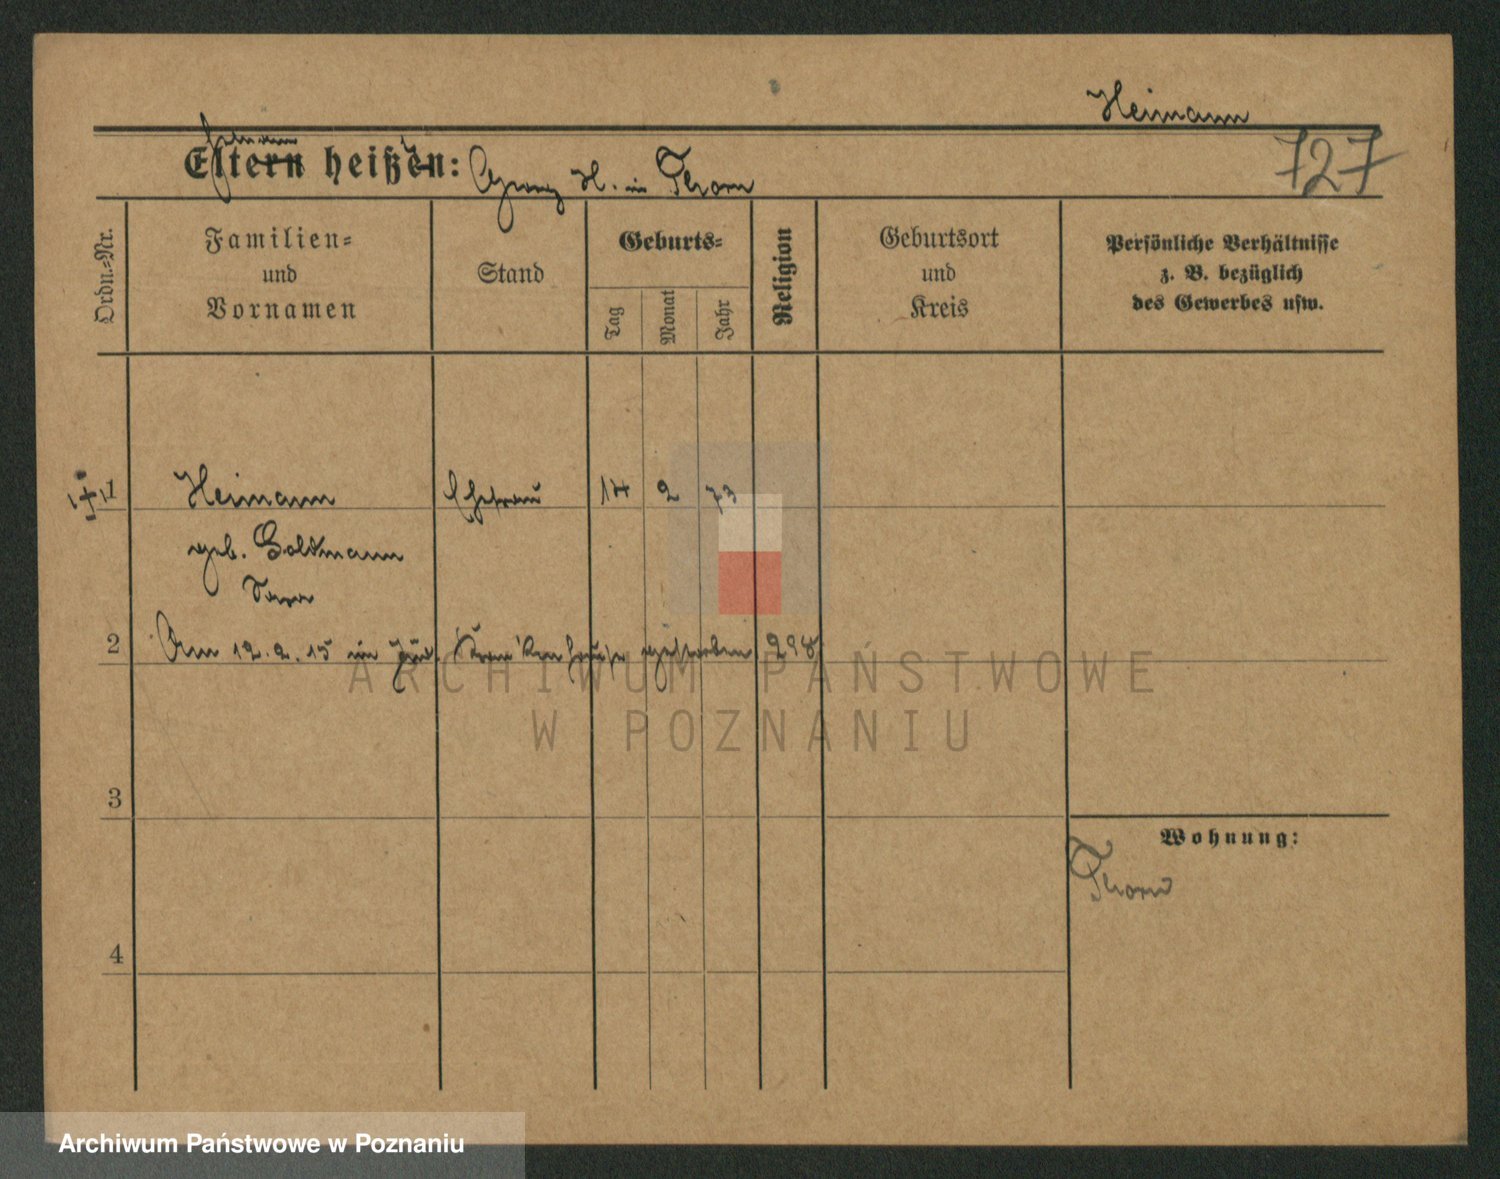 Heimann
727
Eltern heißen: Georg H. in Thorn
Ehemann
Ordn.-Nr.
Familien-
und
Vornamen
Stand
Geburts-
Tag
Monat
Jahr
Religion
Geburtsort
und
Kreis
Persönliche Verhältnisse
z. B. bezüglich
des Gewerbes usw.
1 Heimann Ehefrau 14 2 73
geb. Goldmann
Sara
2 Am 12.2.15 im jüd. Krankenhause gestorben 298
3
Wohnung:
Thorn
4
ARCHIWUM PAŃSTWOWE
W POZNANIU
Archiwum Państwowe w Poznaniu